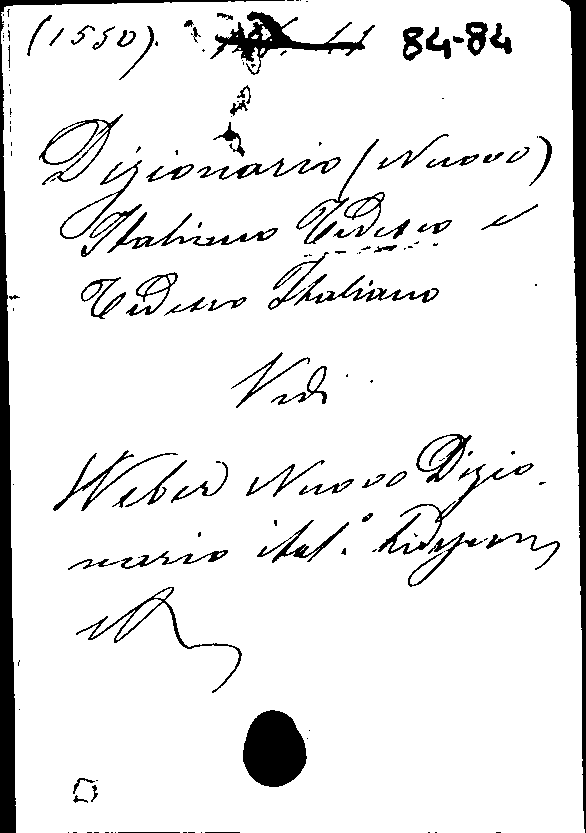 (1550). 84-84
Dizionario (Nuovo)
Italiano Tedesco e
Tedesco Italiano
Vedi
Weber Nuovo Dizio-
nario ital.°